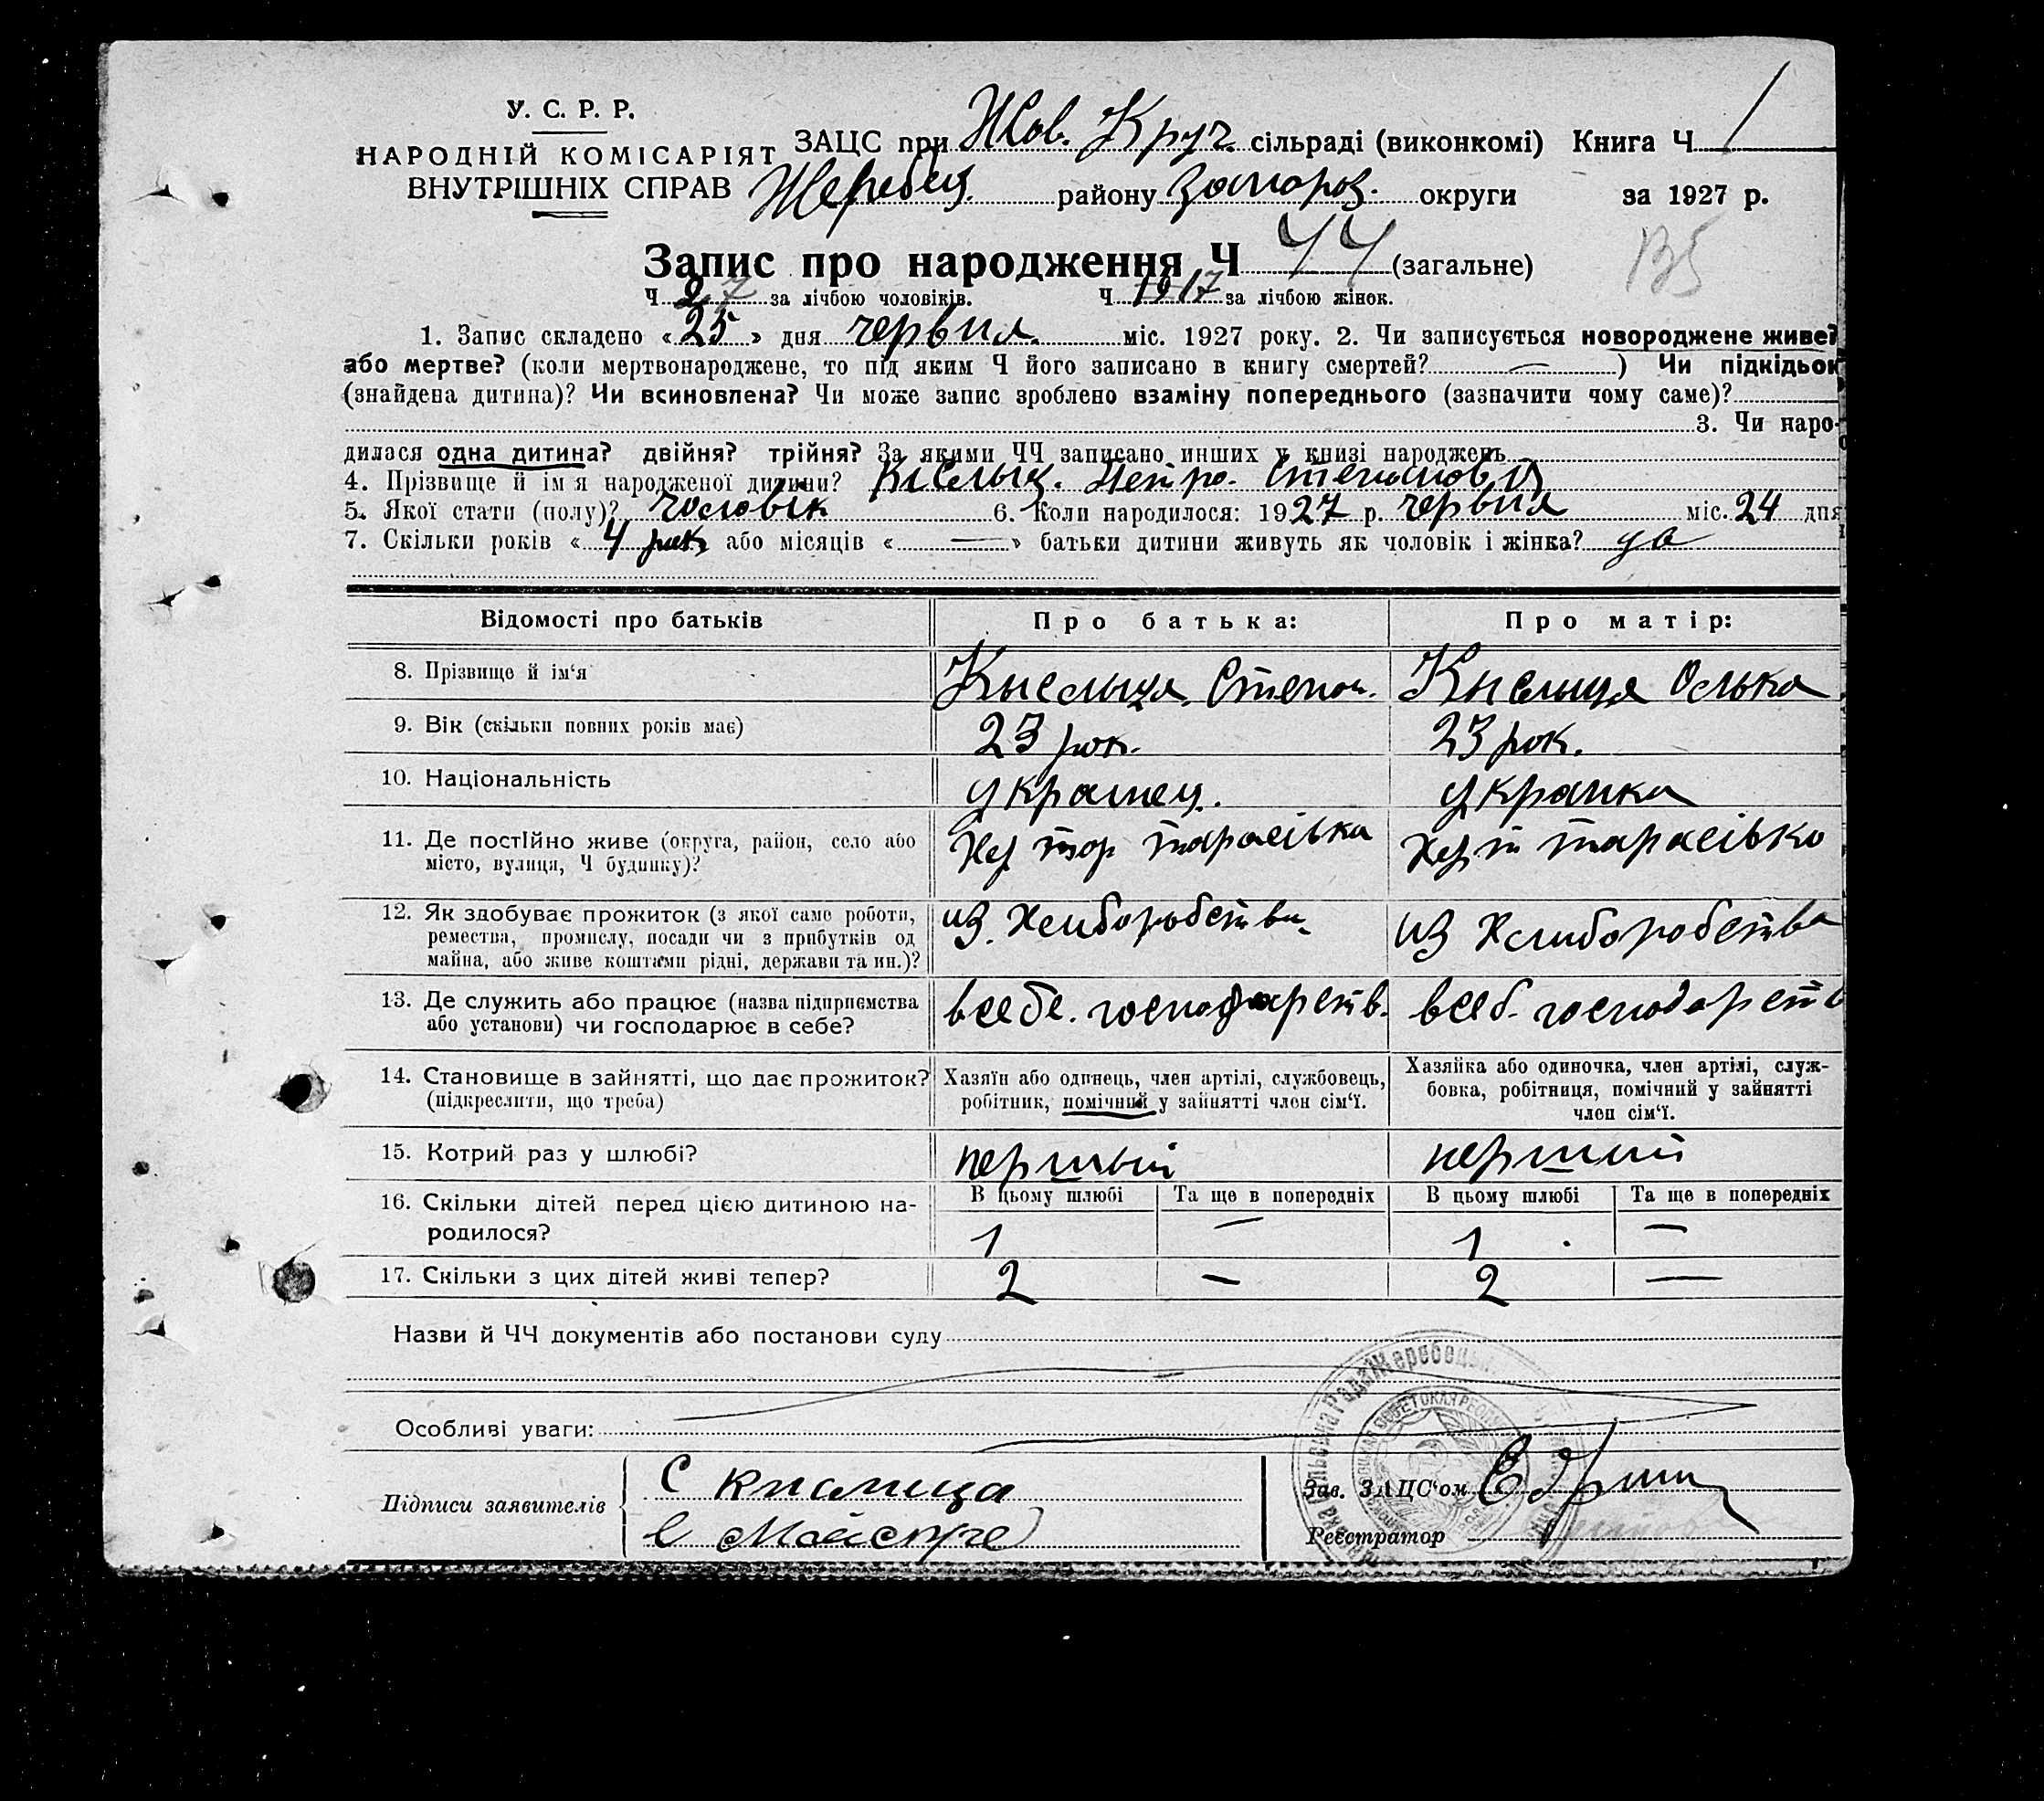 У. С. Р. Р.
НАРОДНІЙ КОМІСАРІЯТ
ВНУТРІШНІХ СПРАВ
ЗАЦС при Жов. Круч. сільраді (виконкомі) Книга Ч 1
Жеребец. району Запороз. округи за 1927 р.
Запис про народження Ч 44 (загальне)
Ч 27 за лічбою чоловіків. Ч 17 за лічбою жінок.
1. Запис складено «25» дня червня. міс. 1927 року. 2. Чи записується новороджене живе?
або мертве? (коли мертвонароджене, то під яким Ч його записано в книгу смертей? — ) Чи підкідьок
(знайдена дитина)? Чи всиновлена? Чи може запис зроблено взаміну попереднього (зазначити чому саме)?
3. Чи наро-
дилася одна дитина? двійня? трійня? За якими ЧЧ записано инших у книзі народжень
4. Прізвище й ім'я народженої дитини? Петро. Степанов
5. Якої стати (полу)? чоловік 6. Коли народилося: 1927 р. червня міс. 24 дня
7. Скільки років «4 рок» або місяців « — » батьки дитини живуть як чоловік і жінка? да
Відомості про батьків Про батька: Про матір:
8. Прізвище й ім'я Кыслыця. Степан. Кыслиця Олька
9. Вік (скільки повних років має) 23 рок. 23 рок.
10. Національність украинец. украинка
11. Де постійно живе (округа, район, село або
місто, вулиця, Ч будинку)?
Ху тор тарасівка Хут тарасівка
12. Як здобуває прожиток (з якої саме роботи,
ремества, промислу, посади чи з прибутків од
майна, або живе коштами рідні, держави та ин.)?
из. Хлиборобства. из Хлиборобства
13. Де служить або працює (назва підприємства
або установи) чи господарює в себе?
всебе. господарств. всеб. господарств
14. Становище в зайнятті, що дає прожиток?
(підкреслити, що треба)
Хазяїн або одинець, член артілі, службовець,
робітник, помічний у зайнятті член сім'ї.
Хазяйка або одиночка, член артілі, служ-
бовка, робітниця, помічний у зайнятті
член сім'ї.
15. Котрий раз у шлюбі? першый першый
В цьому шлюбі Та ще в попередніх В цьому шлюбі Та ще в попередніх
16. Скільки дітей перед цією дитиною на-
родилося?
1 — 1 —
17. Скільки з цих дітей живі тепер? 2 — 2 —
Назви й ЧЧ документів або постанови суду
Особливі уваги:
Підписи заявителів
С кислица
Зав. ЗАЦС'ом
Реєстратор